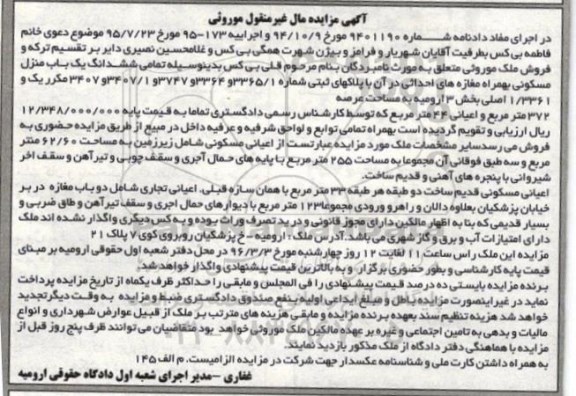 آگهی مزایده مال غیرمنقول موروثی
در اجرای مفاد دادنامه شماره ۹۴۰۱۱۹۰ مورخ ۹۴/۱۰/۹ و اجراییه ۱۷۳-۹۵ مورخ ۹۵/۷/۲۳ موضوع دعوی خانم
فاطمه بی کس بطرفیت آقایان شهریار و فرامز و بیژن شهرت همگی بی کس و غلامحسین نصیری دایر بر تقسیم ترکه و
فروش ملک موروثی متعلق به مورث نامبردگان بنام مرحوم قلی بی کس بدینوسیله تمامی ششدانگ یک باب منزل
مسکونی بهمراه مغازه های احداثی در آن با پلاکهای ثبتی شماره ۳۳۶۵/۱ و ۳۳۶۴ و ۳۷۴۷ و ۳۴۰۷/۱ و ۳۴۰۷ مکرر یک و
۱/۳۳۶۱ اصلی بخش ۳ ارومیه به مساحت عرصه
۳۷۲ متر مربع و اعیانی ۴۴ متر مربع که توسط کارشناس رسمی دادگستری تماما به قیمت پایه ۱۲/۳۴۸/۰۰۰/۰۰۰
ریال ارزیابی و تقویم گردیده است بهمراه تمامی توابع و لواحق شرفیه و عرفیه داخل در مبیع از طریق مزایده حضوری به
فروش می رسد سایر مشخصات ملک مورد مزایده عبارتست از اعیانی مسکونی شامل زیرزمین به مساحت ۶۲/۶۰ متر
مربع و سه طبق فوقانی آن مجموعا به مساحت ۲۵۵ متر مربع با پایه های حمال آجری و سقف چوبی و تیرآهن و سقف اخر
شیروانی با پنجره های آهنی و قدیم ساخت.
اعیانی مسکونی قدیم ساخت دو طبقه هر طبقه ۳۳ متر مربع با همان سازه قبلی. اعیانی تجاری شامل دو باب مغازه در بر
خیابان پزشکیان بعلاوه دالان و راهرو ورودی مجموعا ۱۲۳ متر مربع با دیوارهای حمال اجری و سقف تیرآهن و طاق ضربی و
بسیار قدیمی که بنا به اظهار مالکین دارای مجوز قانونی و در ید تصرف وراث بوده و به کس دیگری واگذار نشده اند ملک
دارای امتیازات آب و برق و گاز شهری می باشد. آدرس ملک : ارومیه - خ پزشکیان روبروی کوی ۷ پلاک ۲۱
مزایده این ملک راس ساعت ۱۱ لغایت ۱۲ روز چهارشنبه مورخ ۹۶/۳/۳ در محل دفتر شعبه اول حقوقی ارومیه بر مبنای
قیمت پایه کارشناسی و بطور حضوری برگزار و به بالاترین قیمت پیشنهادی واگذار خواهد شد.
برنده مزایده بایستی ده درصد قیمت پیشنهادی را فی المجلس و مابقی را حداکثر ظرف یکماه از تاریخ مزایده پرداخت
نماید در غیر اینصورت مزایده باطل و مبلغ ابداعی اولیه بنفع صندوق دادگستری ضبط و مزایده به وقت دیگر تجدید
خواهد شد هزینه تنظیم سند بعهده برنده مزایده و مابقی هزینه های مترتب بر ملک از قبیل عوارض شهرداری و انواع
مالیات و بدهی به تامین اجتماعی و غیره بر عهده مالکین ملک موروثی خواهد بود متقاضیان می توانند ظرف پنج روز قبل از
مزایده با هماهنگی دفتر دادگاه از ملک مذکور بازدید نمایند
به همراه داشتن کارت ملی و شناسنامه عکسدار جهت شرکت در مزایده الزامیست. م الف ۱۴۵
غفاری -مدیر اجرای شعبه اول دادگاه حقوقی ارومیه